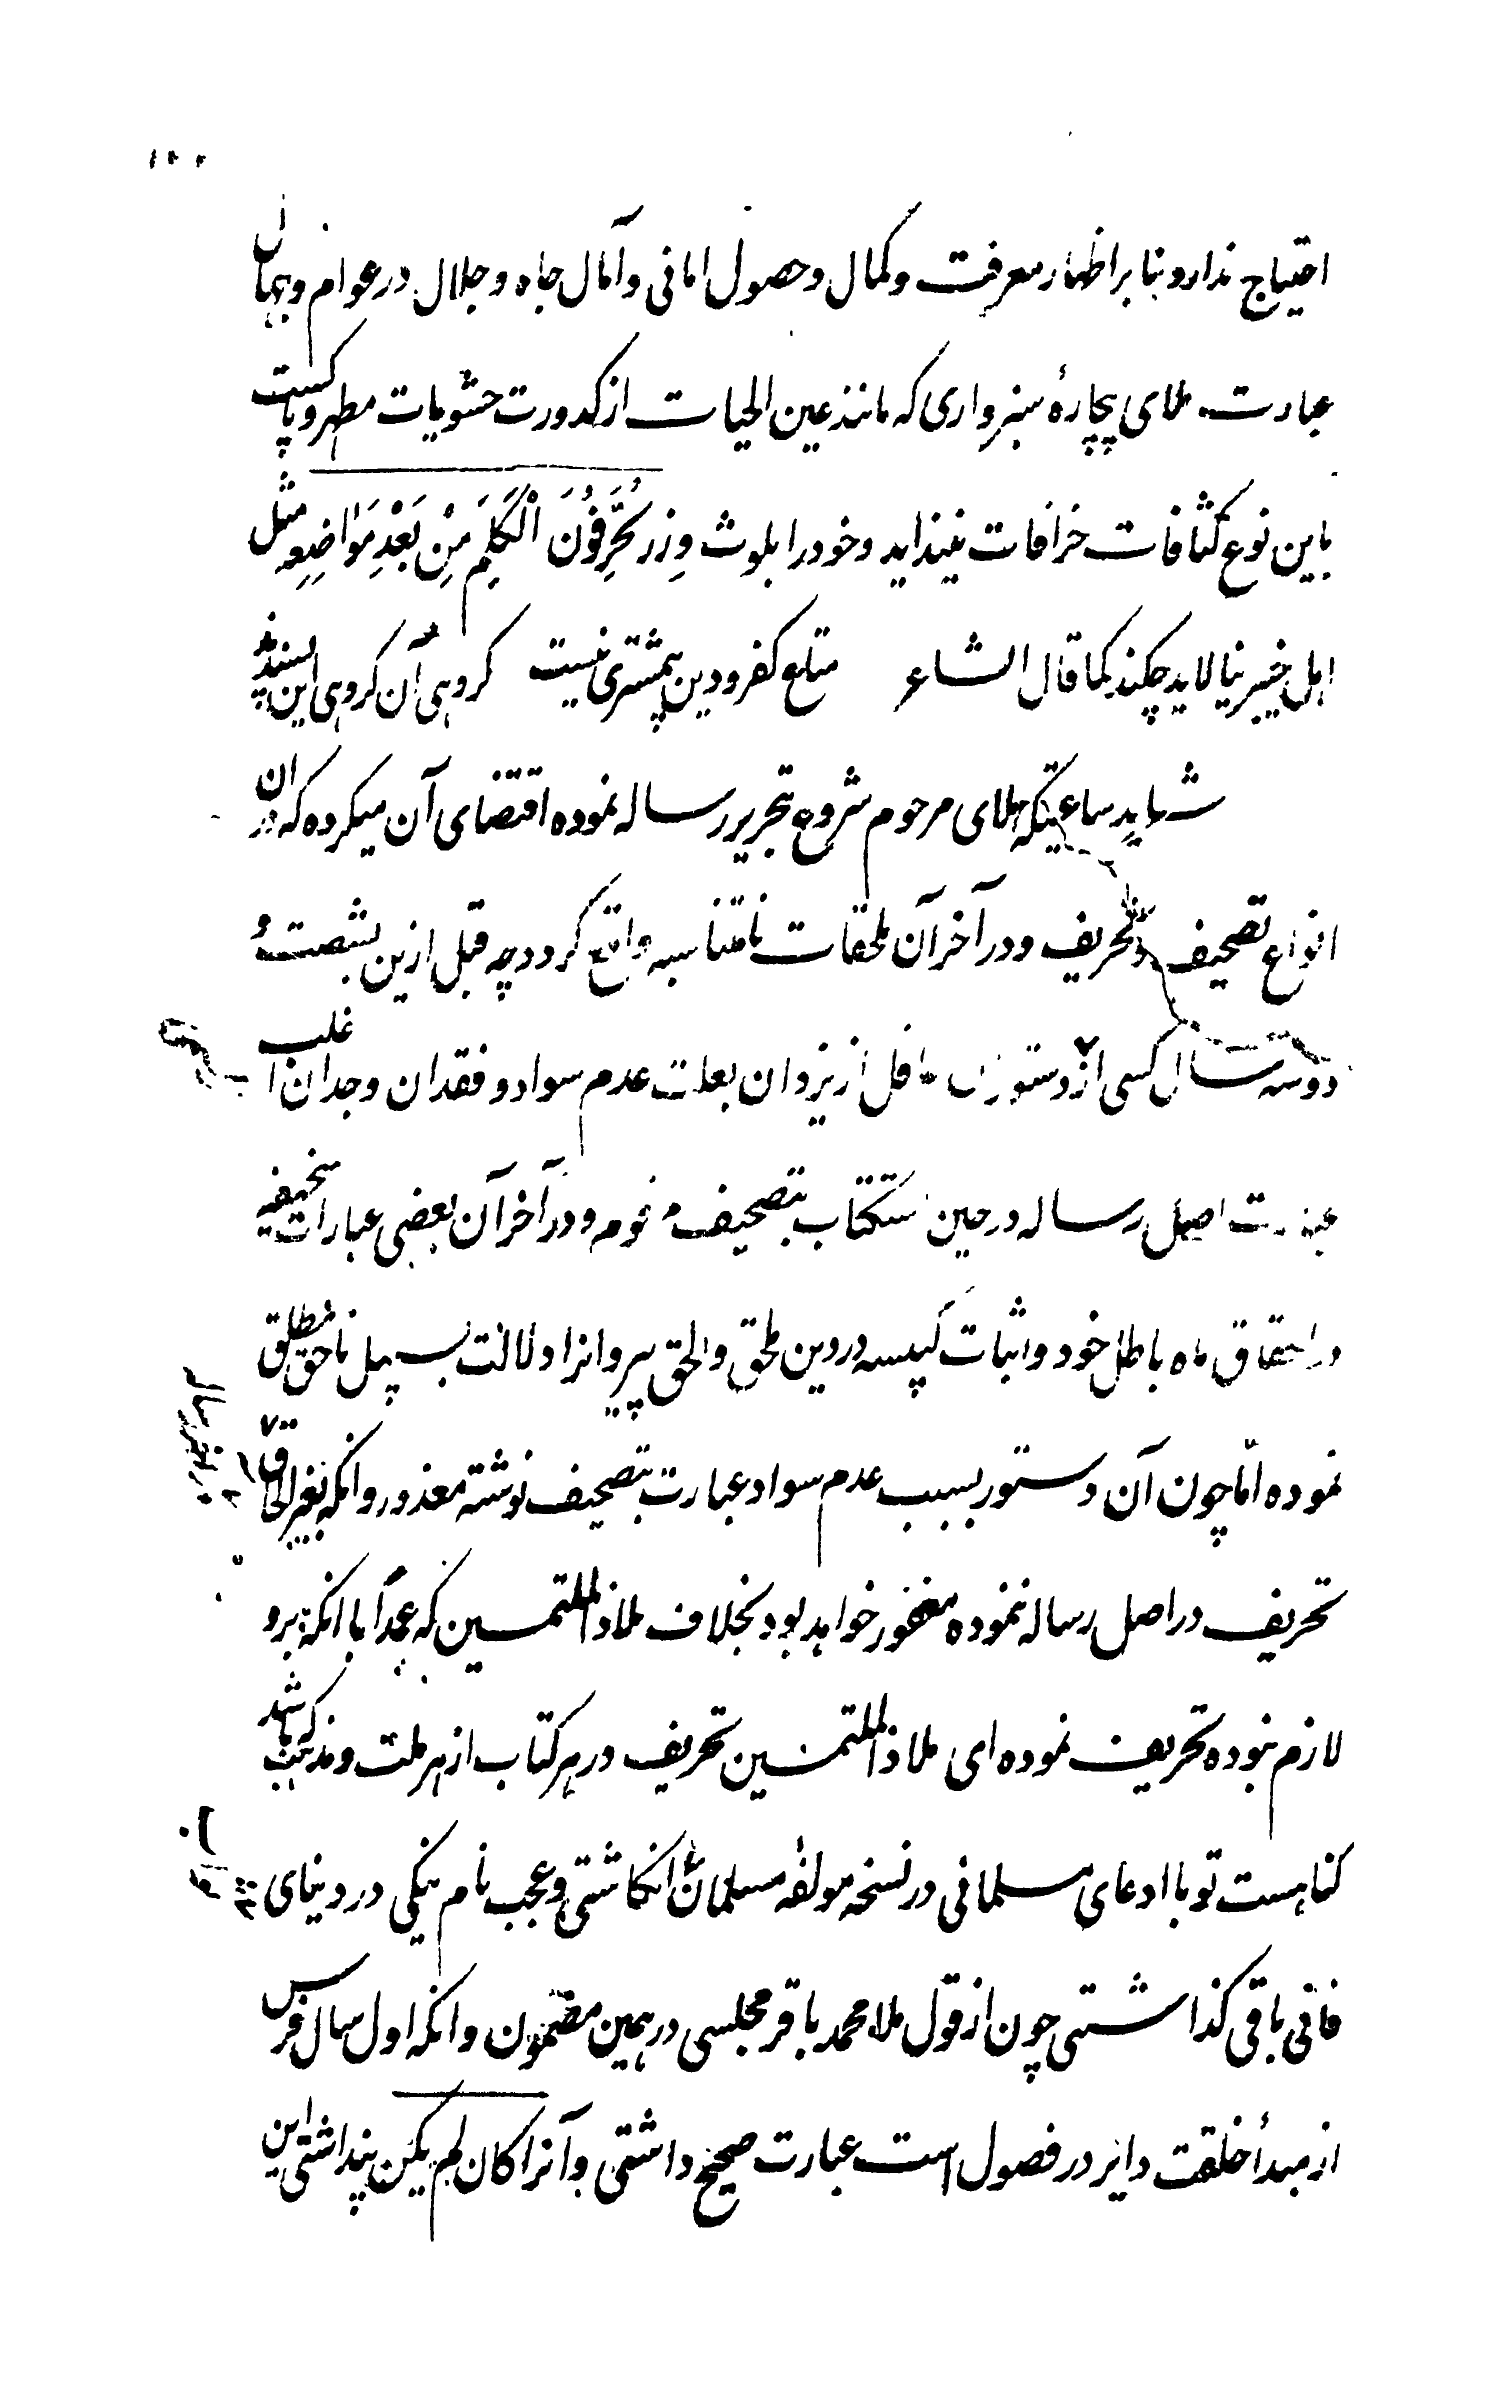 ۱۰۰
احتیاج ندارد و بنا بر اظهار معرفت و کمال و حصول امانی و آمال جاه و جلال در عوام و بهمان
عبارت ملای بیچارهٔ سبزواری که مانند عین الحیات از کدورت حشویات مطهر و پاکست
باین نوع کثافات خرافات نیندایند و خود را بلوث وِزر یُحَرِّفُونَ الْکَلِمَ مِنْ بَعْدِ مَوَاضِعِهِ مثل
اهل خیبر نیالاید چکند کما قال الشاعر متاع کفر و دین بیمشتری نیست گروهی آن گروهی این پسندند
شاید ساعتیکه ملای مرحوم شروع بتحریر رساله نموده اقتضای آن میکرده که در ان
انواع تصحیف و تحریف و در آخر آن ملحقات نامتناسبه واقع گردد چه قبل ازین بشصت و
دو سه سال کسی از دستوران غافل از یزدان بعلت عدم سواد و فقدان وجدان اغلب
عبارت اصل رساله در حین استکتاب بتصحیف مرقوم و در آخر آن بعضی عبارات سخیفه
در احتقاق ماه باطل خود و اثبات کبیسه در دین ملحق و الحق پیروانرا دلالت بسبیل ناحق مطلق
نموده امّا چون آن دستور بسبب عدم سواد عبارت بتصحیف نوشته معذور و انکه بغیر الحاق
تحریف در اصل رساله ننموده مغفور خواهد بود بخلاف ملاذ الملتمسین که عمداً با انکه برو
لازم نبوده تحریف نموده ای ملاذ الملتمسین تحریف در هر کتاب از هر ملت و مذهب که باشد
گناهست تو با ادعای مسلمانی در نسخه مولفه مسلمان انگاشتی و عجب نام نیکی در دنیای
فانی باقی گذاشتی چون از قول ملا محمد باقر مجلسی در همین مضمون و انکه اول سال فرس
از مبدأ خلقت دایر در فصول است عبارت صحیح داشتی و آنرا کان لم یکن پنداشتی این